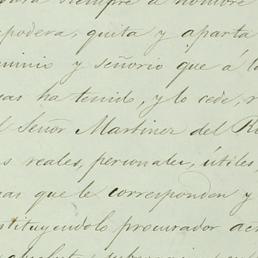 siempre á nombre
apodera, quita y aparta
dominio y señorio que á l
as ha tenido, y lo cede, r
l Señor Martinez del R
s reales, personales, útiles,
as que le corresponden y
stituyendolo procurador ac